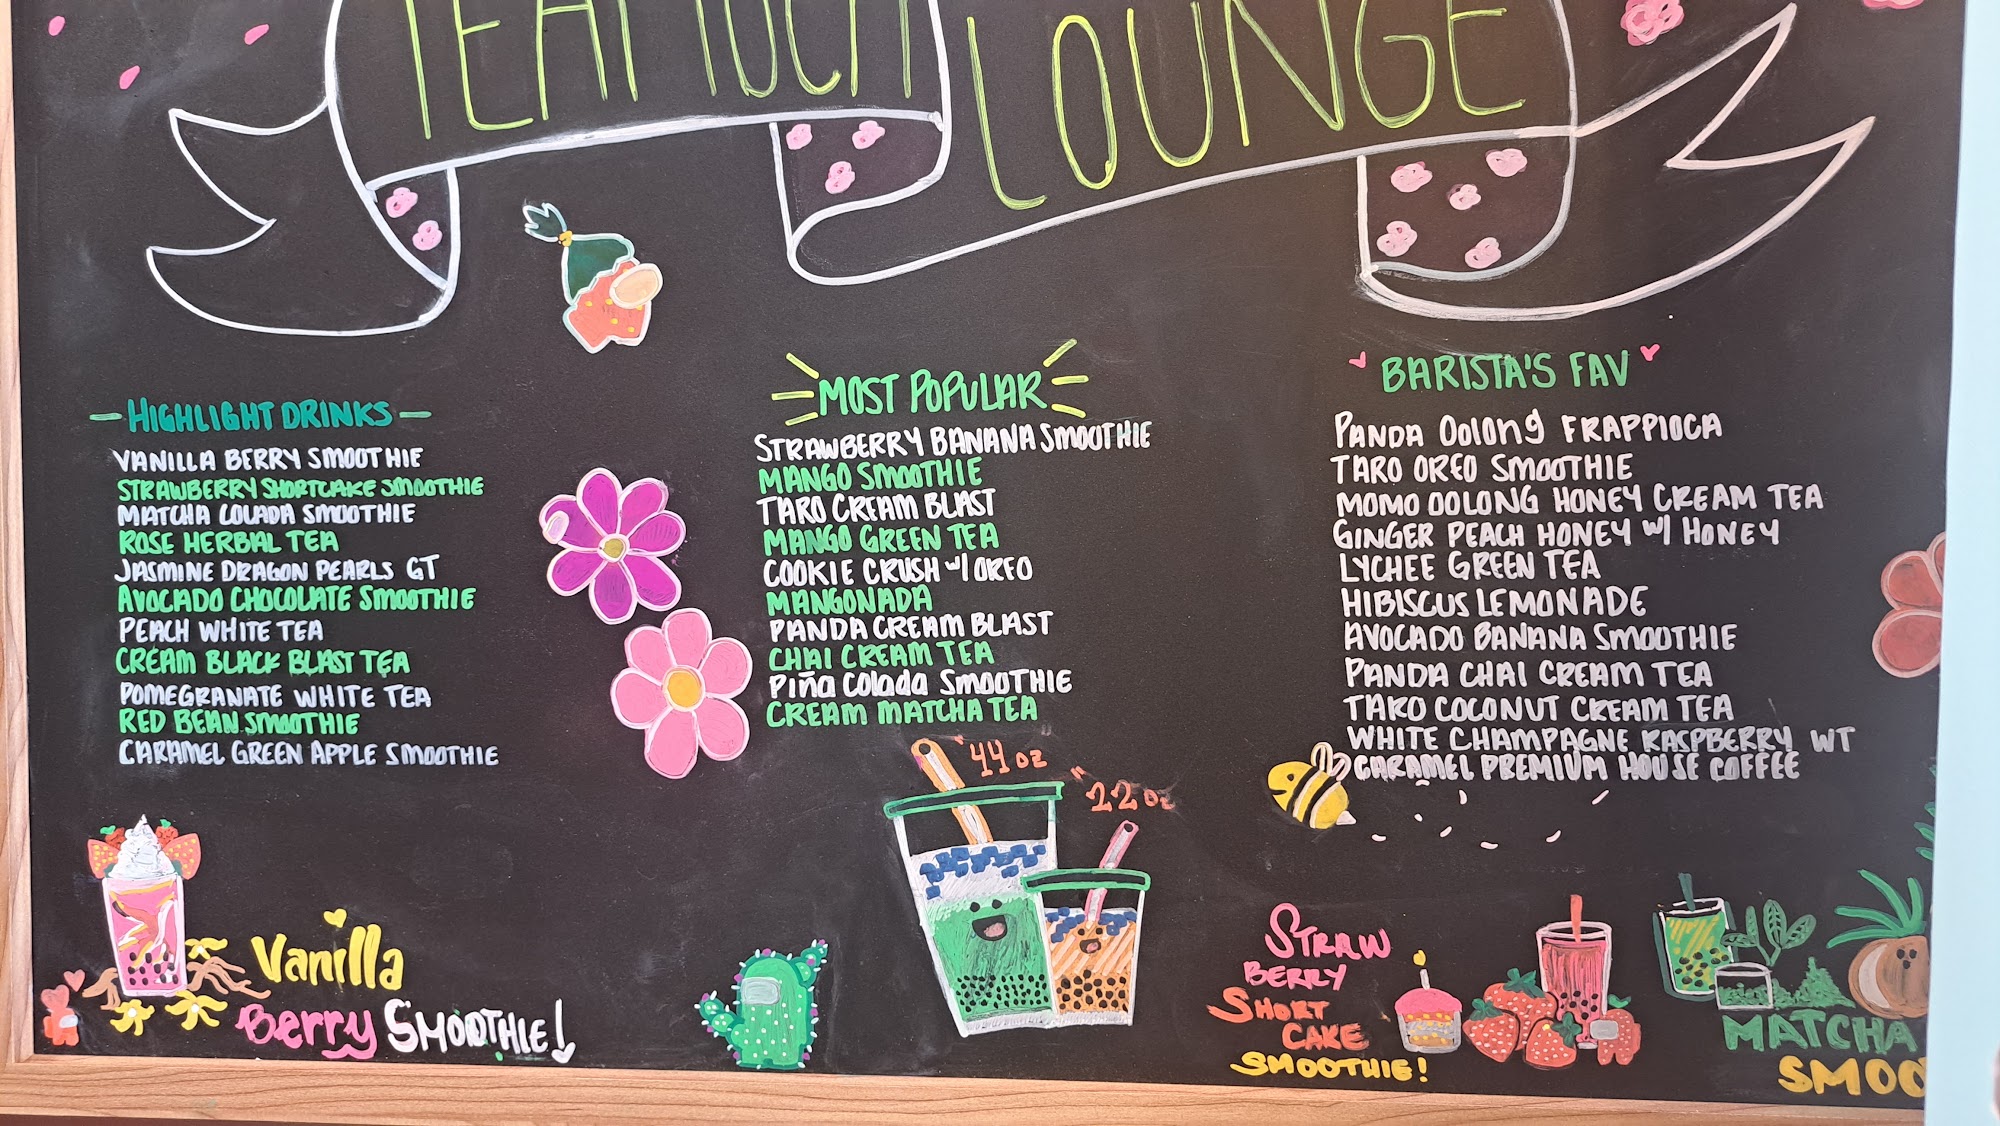 TEAMOCHI LOUNGE
HIGHLIGHT DRINKS
VANILLA BERRY SMOOTHIE
STRAWBERRY SHORTCAKE SMOOTHIE
MATCHA COLADA SMOOTHIE
ROSE HERBAL TEA
JASMINE DRAGON PEARLS GT
AVOCADO CHOCOLATE SMOOTHIE
PEACH WHITE TEA
CREAM BLACK BLAST TEA
POMEGRANATE WHITE TEA
RED BEAN SMOOTHIE
CARAMEL GREEN APPLE SMOOTHIE
MOST POPULAR
STRAWBERRY BANANA SMOOTHIE
MANGO SMOOTHIE
TARO CREAM BLAST
MANGO GREEN TEA
COOKIE CRUSH w/ OREO
MANGONADA
PANDA CREAM BLAST
CHAI CREAM TEA
Piña Colada SMOOTHIE
CREAM MATCHA TEA
BARISTA'S FAV
PANDA Oolong FRAPPIOCA
TARO OREO SMOOTHIE
MOMO OOLONG HONEY CREAM TEA
GINGER PEACH HONEY w/ HONEY
LYCHEE GREEN TEA
HIBISCUS LEMONADE
AVOCADO BANANA SMOOTHIE
PANDA CHAI CREAM TEA
TARO COCONUT CREAM TEA
WHITE CHAMPAGNE RASPBERRY WT
CARAMEL PREMIUM HOUSE COFFEE
44 oz
22 oz
Vanilla
Berry SMOOTHIE!
STRAW
BERRY
SHORT
CAKE
SMOOTHIE!
MATCHA
SMOO